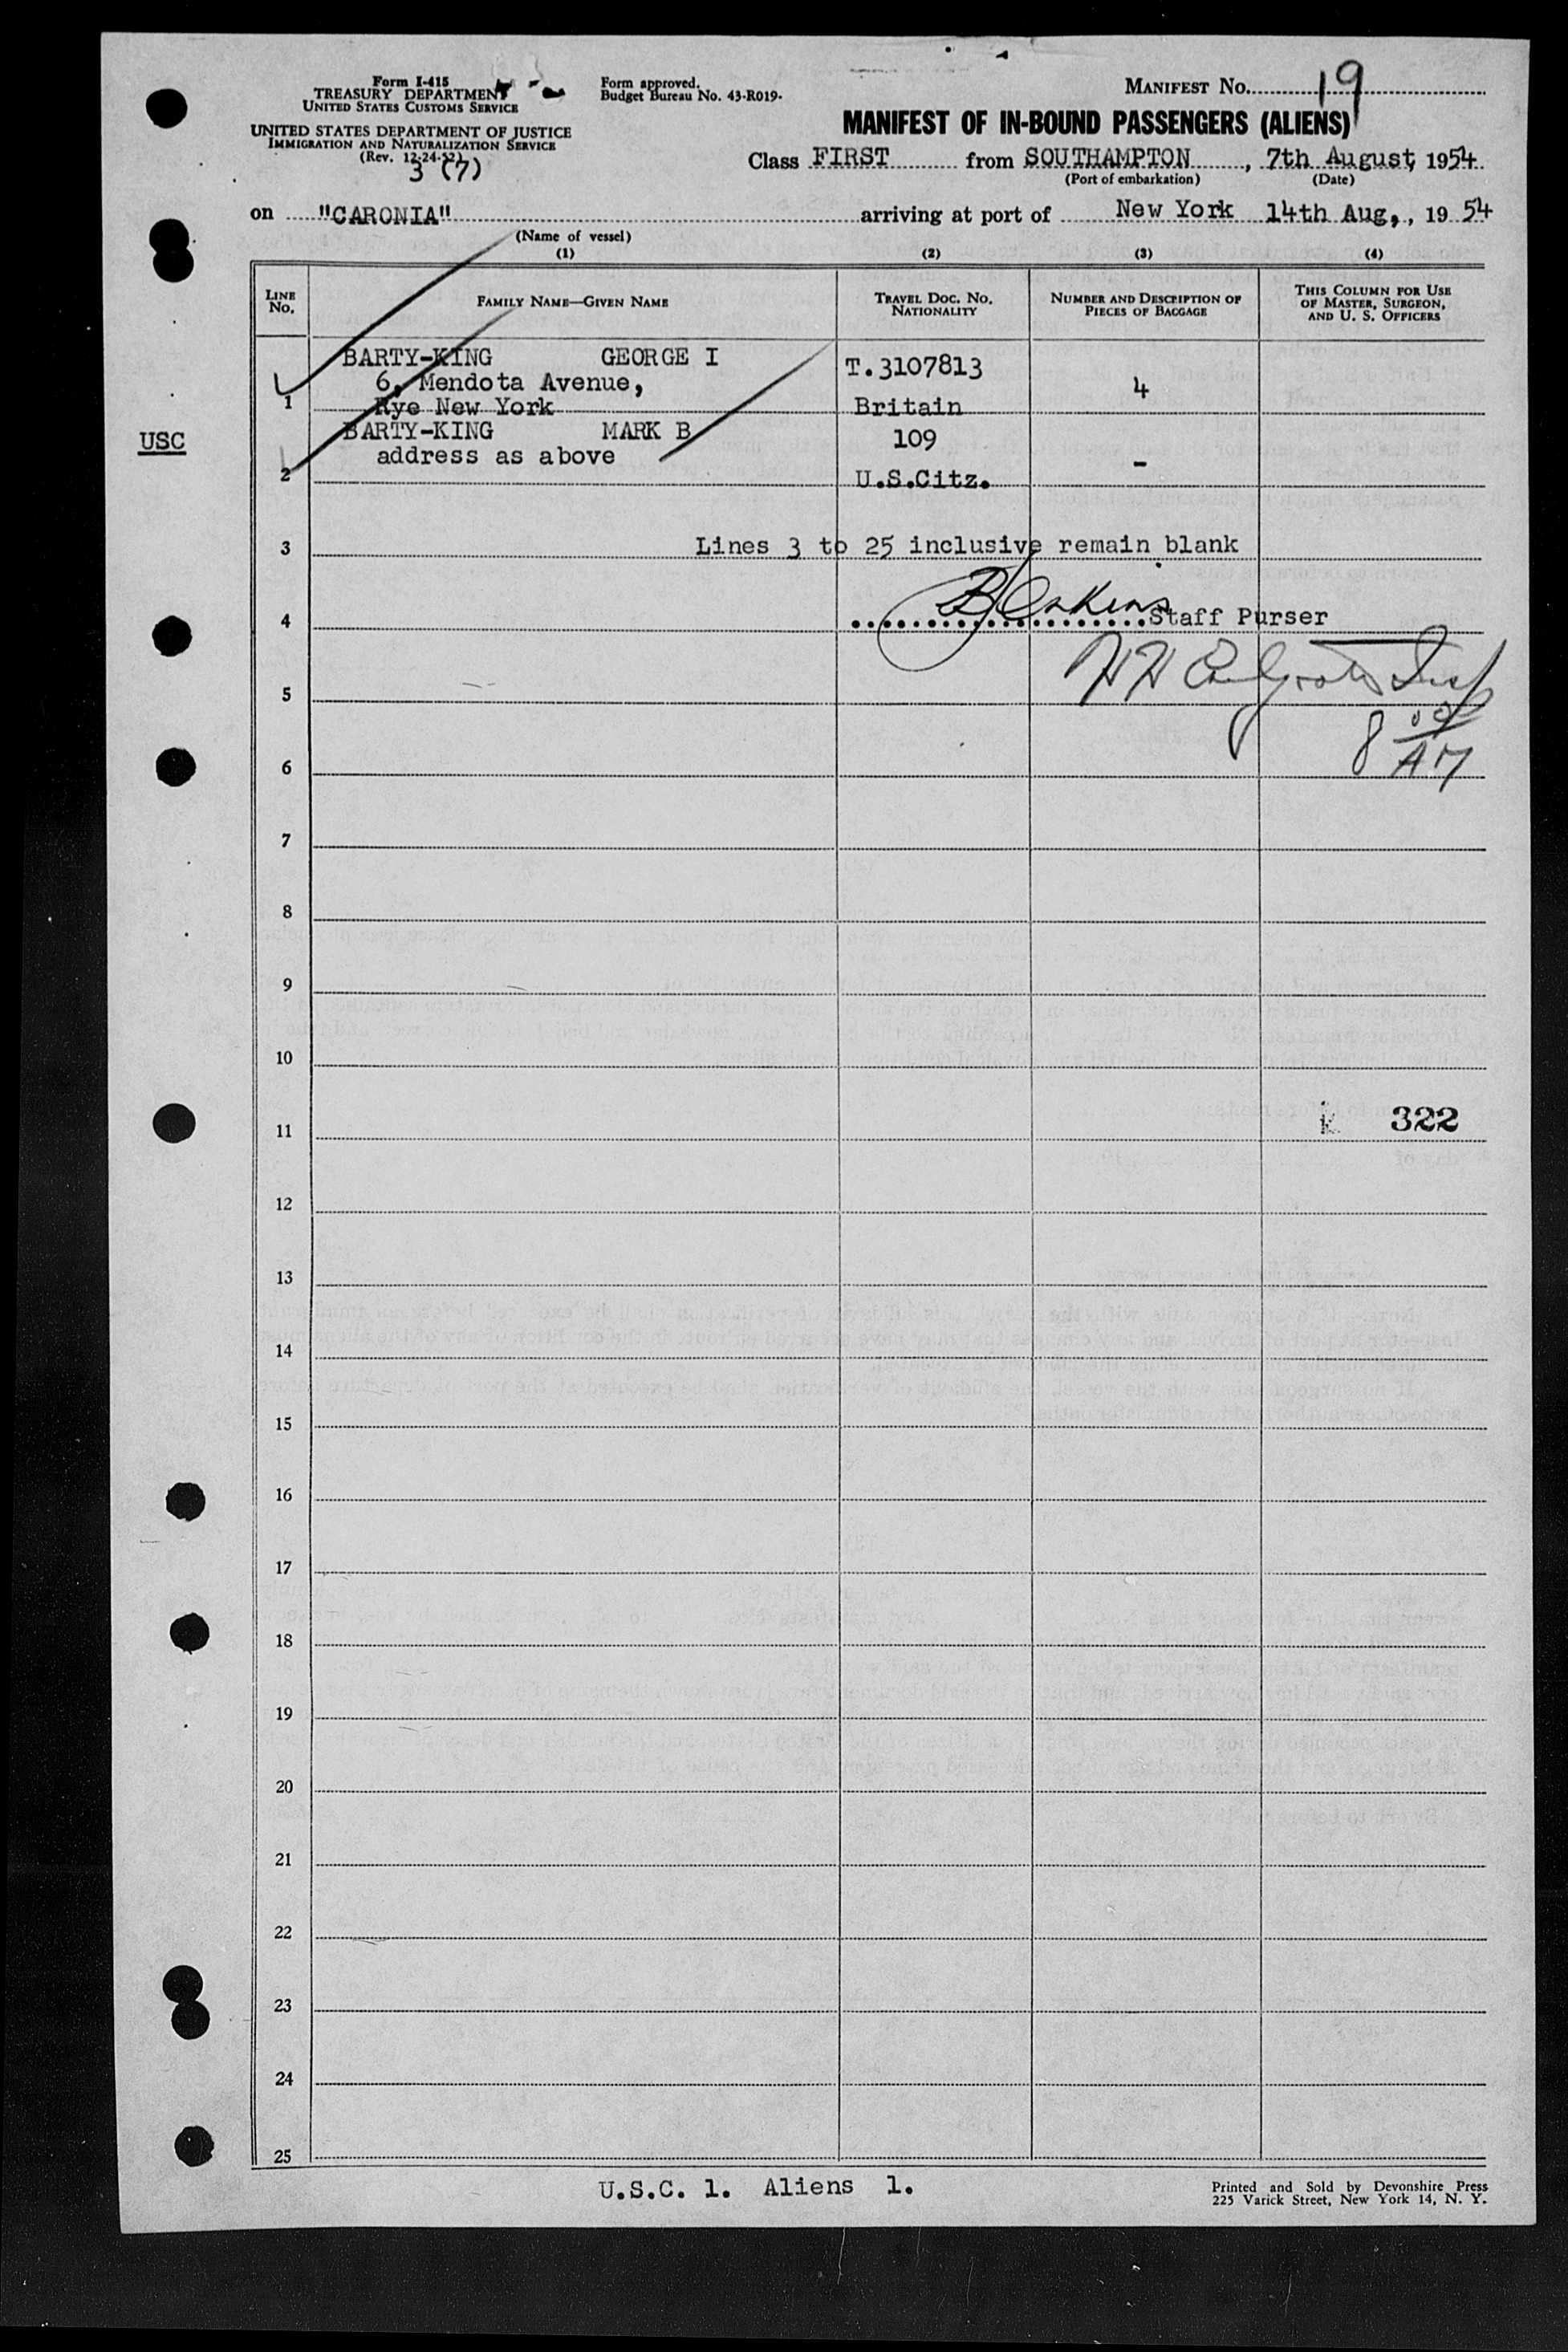 Form I-415
TREASURY DEPARTMENT
UNITED STATES CUSTOMS SERVICE
UNITED STATES DEPARTMENT OF JUSTICE
IMMIGRATION AND NATURALIZATION SERVICE
(Rev. 12-24-52)
3 (7)
Form approved.
Budget Bureau No. 43-R019.
MANIFEST NO. 19
MANIFEST OF IN-BOUND PASSENGERS (ALIENS)
Class FIRST from SOUTHAMPTON, 7th August, 1954
(Port of embarkation) (Date)
on "CARONIA" arriving at port of New York 14th Aug., 1954
(Name of vessel)
(1) (2) (3) (4)
LINE NO. FAMILY NAME—GIVEN NAME TRAVEL DOC. NO. NATIONALITY NUMBER AND DESCRIPTION OF PIECES OF BAGGAGE THIS COLUMN FOR USE OF MASTER, SURGEON, AND U. S. OFFICERS
BARTY-KING GEORGE I T.3107813
6, Mendota Avenue, 4
1 Rye New York Britain
USC BARTY-KING MARK B 109
address as above -
2 U.S.Citz.
3 Lines 3 to 25 inclusive remain blank
4 Staff Purser
5
8 00 AM
6
7
8
9
10
11 322
12
13
14
15
16
17
18
19
20
21
22
23
24
25
U.S.C. 1. Aliens 1.
Printed and Sold by Devonshire Press
225 Varick Street, New York 14, N. Y.